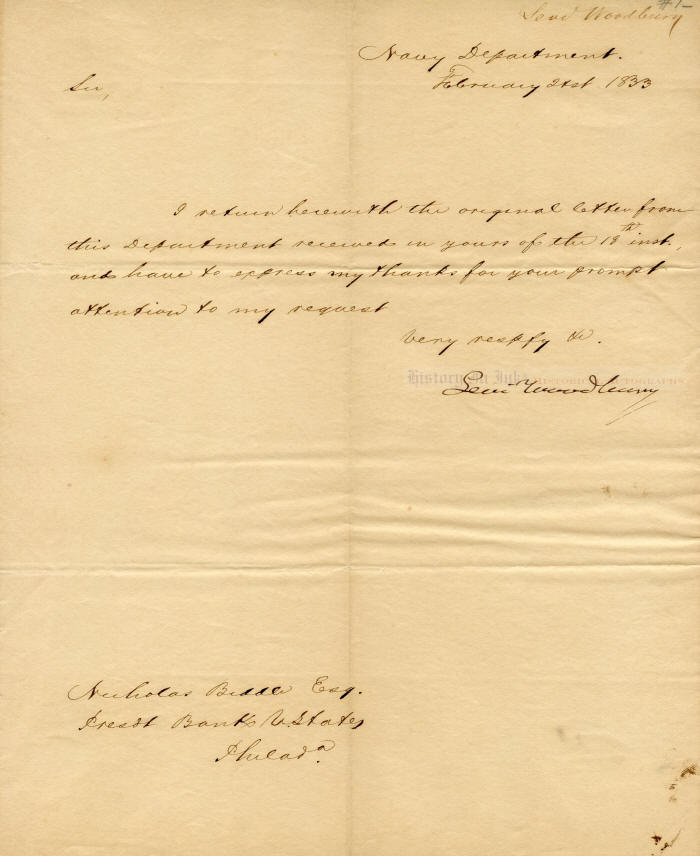 #1-
Levi Woodbury
Navy Department.
February 21st 1833
Sir,
I return herewith the original letter from
this Department received in yours of the 19th inst,
and have to express my thanks for your prompt
attention to my request
Very respfy &c.
History In Ink HISTORICAL AUTOGRAPHS
Levi Woodbury
Nicholas Biddle Esq.
Presdt Bank U. States
Philada.